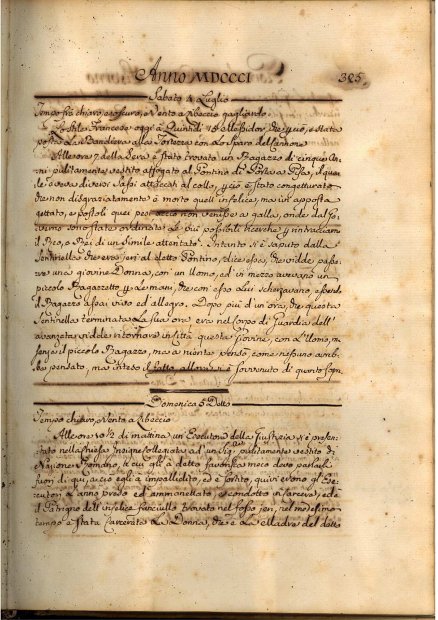 Anno MDCCCI 325
Sabato 4 Luglio
Tempo frà chiaro, e oscuro, e Vento a Libeccio gagliardo
Lo Stile Francese oggi à Quindi 15 Messidor, e è stata
posta La Bandiera alla Fortezza con Lo sparo del Cannone
Alle ore 7 della Sera è stato trovato un Ragazzo di cinque An-
ni pulitamente vestito affogato al Pontino di Porta a Pisa, il qua-
le aveva diversi Sassi attaccati al collo, e ciò è stato congetturato
che non disgraziatamente è morto quell'infelice, ma in apposta
gettato, e postoli quei pesi acciò non venisse a galla, onde dal Go-
verno sono state ordinate Le più possibili ricerche per rintracciare
il Reo, o Rei di un simile attentato. Intanto si è saputo dalla
Sentinella che era jeri al detto Pontino, dice essa, che vidde passa-
re una giovine Donna, con un Uomo, ed in mezzo avevano un
piccolo Ragazzetto per le mani, che con esso Lui scherzavano, essendo
il Ragazzo assai vivo ed allegro. Dopo più d'un'ora, che questa
Sentinella terminata La sua ora era nel Corpo di Guardia dell'
avanzata vidde ritornare in Città questa Giovine, con l'Uomo, ma
senza il piccolo Ragazzo, ma a niente pensò, come nessuno avreb-
be pensato, ma inteso il fatto allora si è sovvenuto di quanto sopra
Domenica 5 Detto
Tempo chiaro, e Vento a Libeccio
Alle ore 10 1/2 di mattina un Esecutore della Giustizia si è presen-
tato nella Chiesa Insigne Collegiata ad un Sig. pulitamente vestito di
Nazione Romano, à cui gli à detto favorisca meco devo parlarli
fuori di qui, acciò egli è impallidito, ed è sortito, quivi erono gli Ese-
cutori L'anno preso ed ammanettato, e condotto in carcere, ed è
il Patrigno dell'infelice fanciullo trovato nel fosso jeri, nel medesimo
tempo è stata Carcerata La Donna, che è La Madre del detto